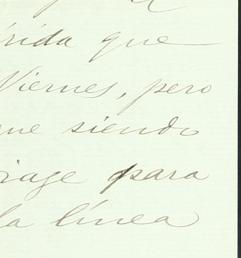 rida que
Viernes, pero
ue siendo
iage para
la línea